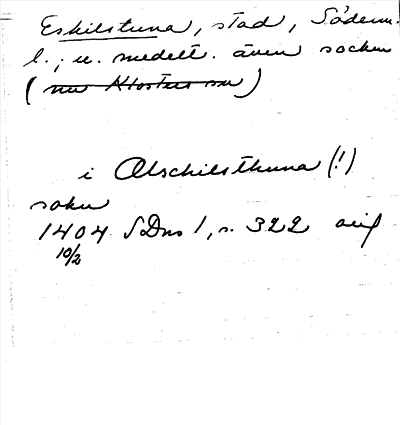 Eskilstuna, stad, Söderm.
l.; u. medelt. även socken
(nu Klosters sn)
i Abschilsthuna (!)
sokn
1404 SDns 1, s. 322 avif
10/2